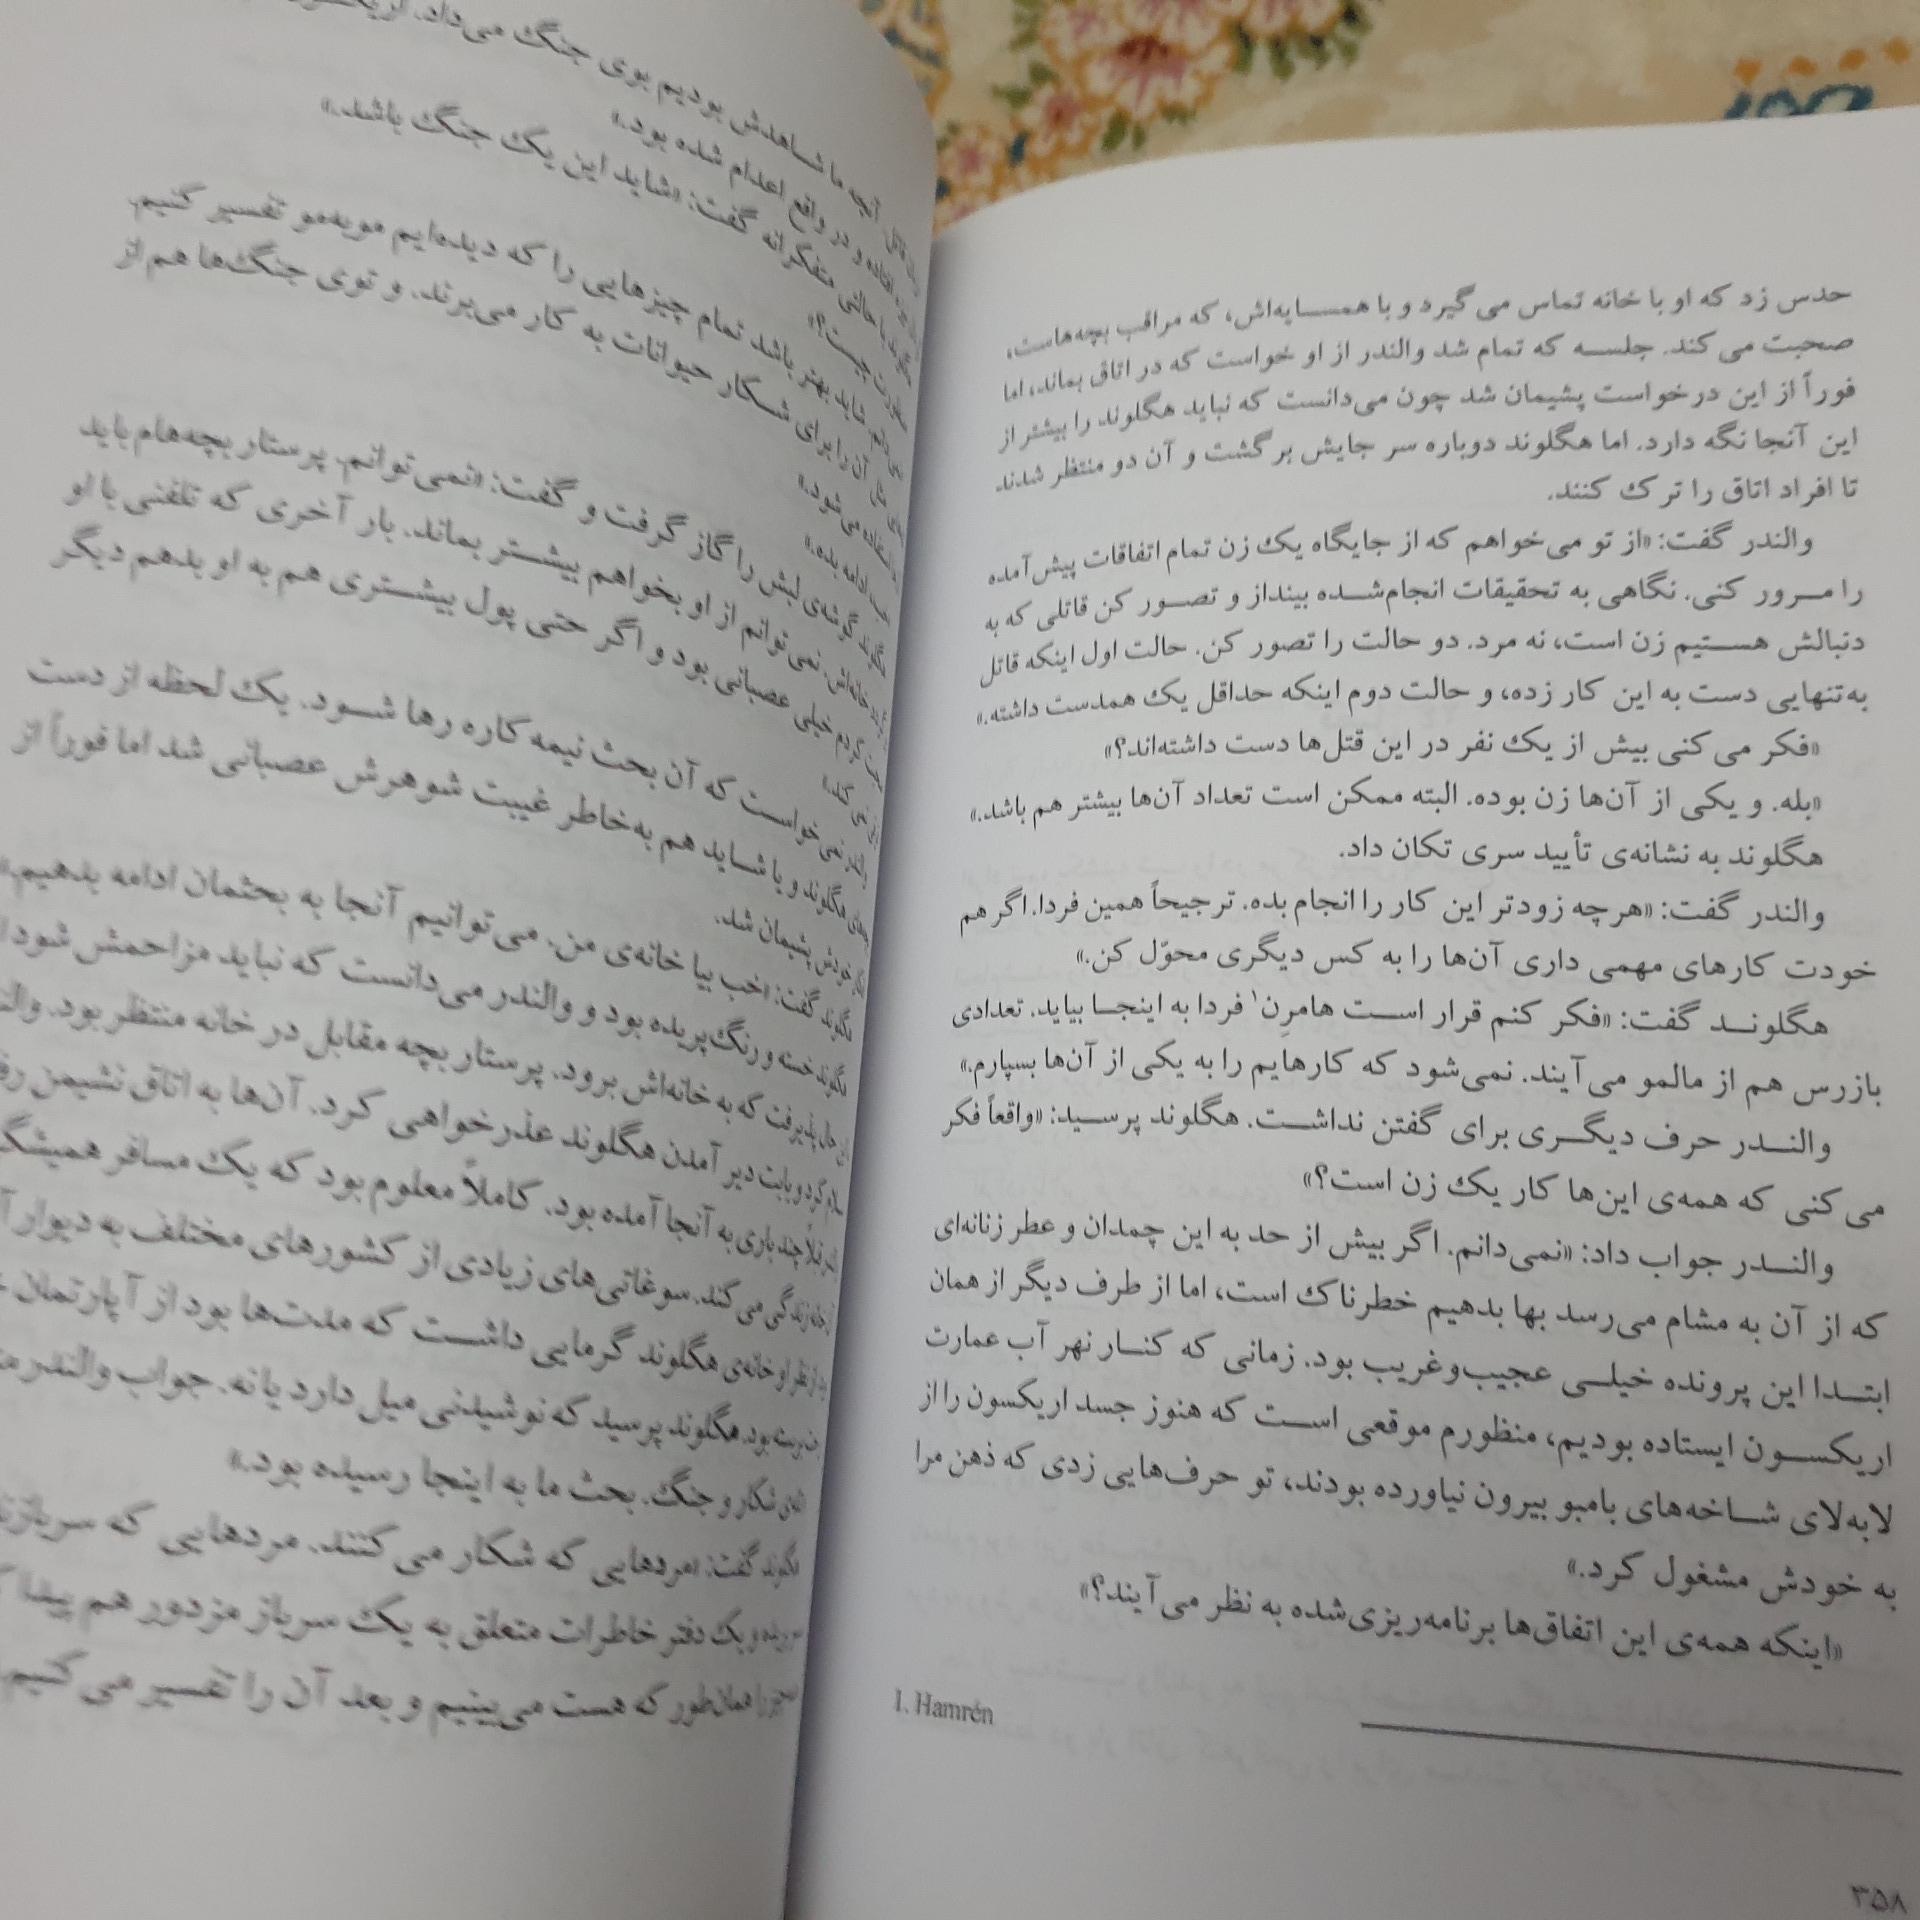 حدس زد که او با خانه تماس می‌گیرد و با همسایه‌اش، که مراقب بچه‌هاست،
صحبت می‌کند. جلسه که تمام شد والندر از او خواست که در اتاق بماند، اما
فوراً از این درخواست پشیمان شد چون می‌دانست که نباید هگلوند را بیشتر از
این آنجا نگه دارد. اما هگلوند دوباره سر جایش برگشت و آن دو منتظر شدند
تا افراد اتاق را ترک کنند.
والندر گفت: «از تو می‌خواهم که از جایگاه یک زن تمام اتفاقات پیش‌آمده
را مرور کنی. نگاهی به تحقیقات انجام‌شده بینداز و تصور کن قاتلی که به
دنبالش هستیم زن است، نه مرد. دو حالت را تصور کن. حالت اول اینکه قاتل
به‌تنهایی دست به این کار زده، و حالت دوم اینکه حداقل یک همدست داشته.»
«فکر می‌کنی بیش از یک نفر در این قتل‌ها دست داشته‌اند؟»
«بله. و یکی از آن‌ها زن بوده. البته ممکن است تعداد آن‌ها بیشتر هم باشد.»
هگلوند به نشانه‌ی تأیید سری تکان داد.
والندر گفت: «هرچه زودتر این کار را انجام بده. ترجیحاً همین فردا. اگر هم
خودت کارهای مهمی داری آن‌ها را به کس دیگری محوّل کن.»
هگلوند گفت: «فکر کنم قرار است هامرِن۱ فردا به اینجا بیاید. تعدادی
بازرس هم از مالمو می‌آیند. نمی‌شود که کارهایم را به یکی از آن‌ها بسپارم.»
والندر حرف دیگری برای گفتن نداشت. هگلوند پرسید: «واقعاً فکر
می‌کنی که همه‌ی این‌ها کار یک زن است؟»
والندر جواب داد: «نمی‌دانم. اگر بیش از حد به این چمدان و عطر زنانه‌ای
که از آن به مشام می‌رسد بها بدهیم خطرناک است، اما از طرف دیگر از همان
ابتدا این پرونده خیلی عجیب‌وغریب بود. زمانی که کنار نهر آب عمارت
اریکسون ایستاده بودیم، منظورم موقعی است که هنوز جسد اریکسون را از
لابه‌لای شاخه‌های بامبو بیرون نیاورده بودند، تو حرف‌هایی زدی که ذهن مرا
به خودش مشغول کرد.»
«اینکه همه‌ی این اتفاق‌ها برنامه‌ریزی‌شده به نظر می‌آیند؟»
1. Hamrén
۳۵۸
آنچه ما شاهدش بودیم بوی جنگ می‌داد.
افتاده و در واقع اعدام شده بود.»
با حالتی متفکرانه گفت: «شاید این یک جنگ باشد.»
چیست؟»
شاید بهتر باشد تمام چیزهایی را که دیده‌ایم موبه‌مو تفسیر کنیم.
آن را برای شکار حیوانات به کار می‌برند. و توی جنگ‌ها هم از
استفاده می‌شود.»
ادامه بده.»
هگلوند گوشه‌ی لبش را گاز گرفت و گفت: «نمی‌توانم. پرستار بچه‌هام باید
خانه‌اش. نمی‌توانم از او بخواهم بیشتر بماند. بار آخری که تلفنی با او
کردم خیلی عصبانی بود و اگر حتی پول بیشتری هم به او بدهم دیگر
نمی‌کند.»
والندر نمی‌خواست که آن بحث نیمه‌کاره رها شود. یک لحظه از دست
هگلوند و یا شاید هم به‌خاطر غیبت شوهرش عصبانی شد اما فوراً از
خودش پشیمان شد.
هگلوند گفت: «خب بیا خانه‌ی من. می‌توانیم آنجا به بحثمان ادامه بدهیم.»
هگلوند خسته و رنگ‌پریده بود و والندر می‌دانست که نباید مزاحمش شود
حال پذیرفت که به خانه‌اش برود. پرستار بچه مقابل در خانه منتظر بود.
سلام کرد و بابت دیر آمدن هگلوند عذرخواهی کرد. آن‌ها به اتاق نشیمن
قبلاً چند باری به آنجا آمده بود. کاملاً معلوم بود که یک مسافر
خانه زندگی می‌کند. سوغاتی‌های زیادی از کشورهای مختلف به دیوار
از نظر او خانه‌ی هگلوند گرمایی داشت که مدت‌ها بود از آپارتمان
بود. هگلوند پرسید که نوشیدنی میل دارد یا نه. جواب والندر
شکار و جنگ. بحث ما به اینجا رسیده بود.»
هگلوند گفت: «مردهایی که شکار می‌کنند. مردهایی که
و یک دفتر خاطرات متعلق به یک سرباز مزدور هم پیدا
را همان‌طور که هست می‌بینیم و بعد آن را تفسیر می‌کنیم